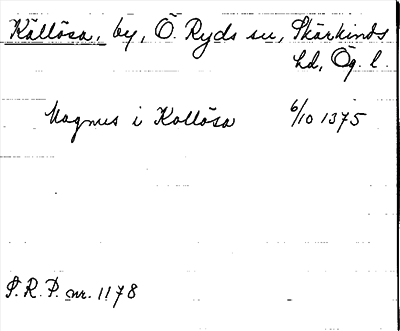 Källösa, by, Ö. Ryds sn, Skärkinds
hd, Ög. l.
Magnus i Kallösa 6/10 1375
S.R.P. nr. 1178